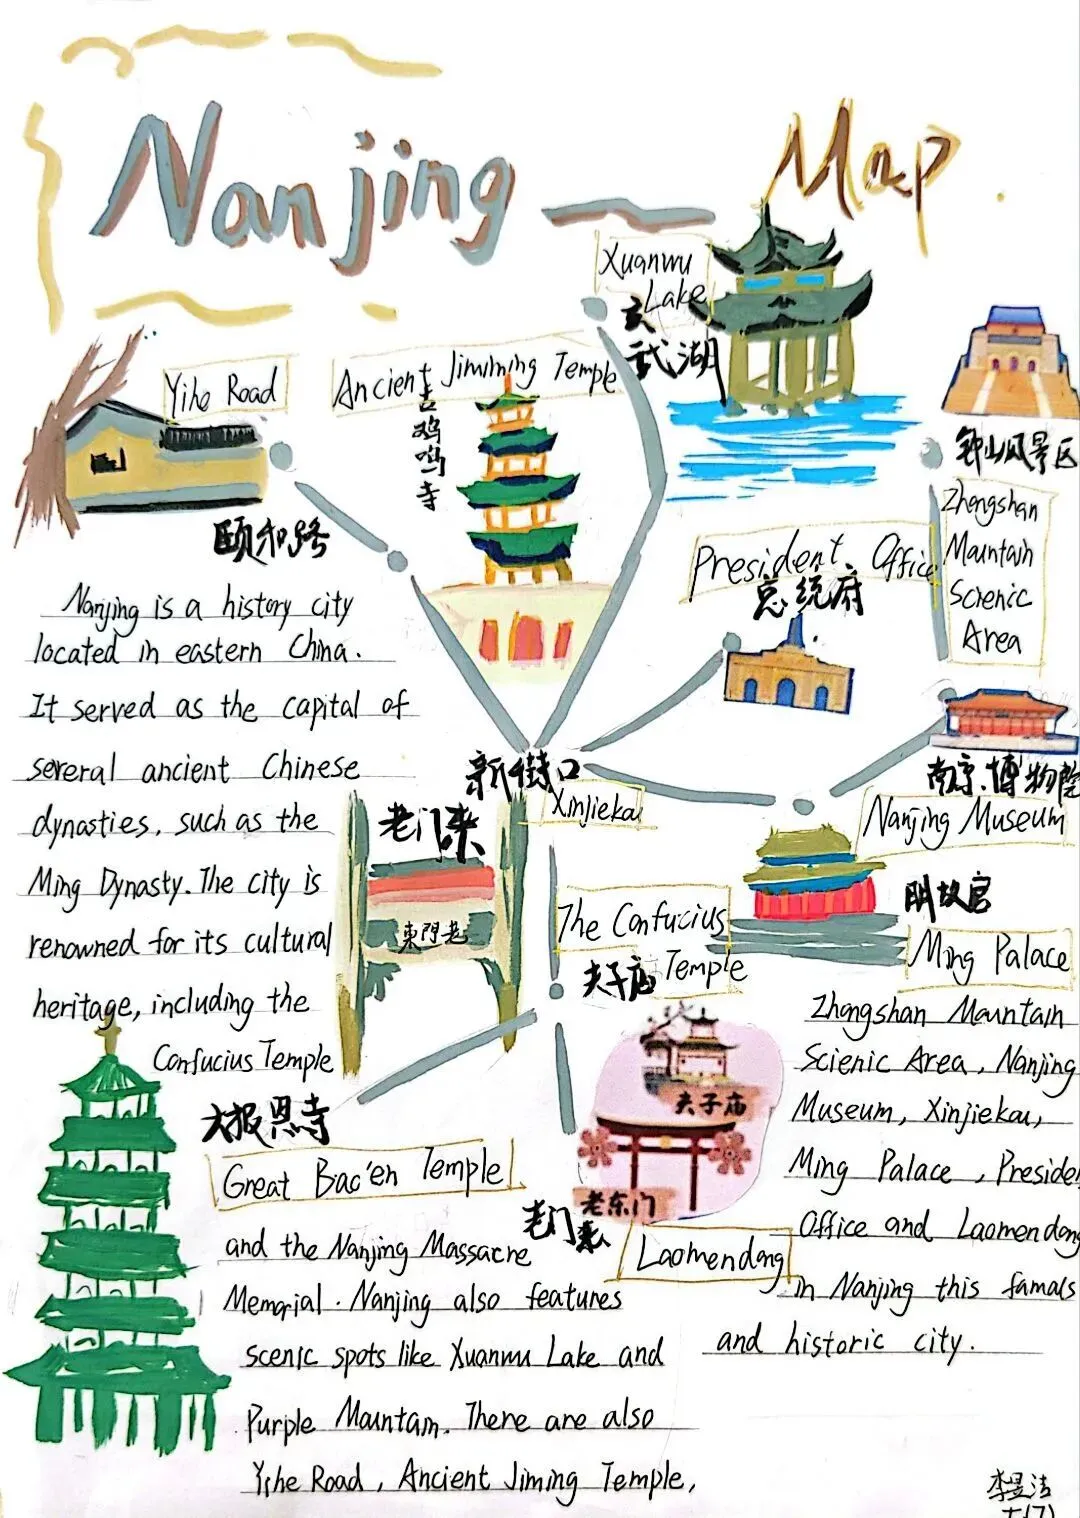 Nanjing Map
Xuanwu
Lake
玄武湖
Yihe Road
颐和路
Ancient Jimining Temple
古鸡鸣寺
钟山风景区
Zhongshan
Mountain
Screnic
Area
President Office
总统府
新街口
Xinjiekou
南京博物院
Nanjing Museum
明故宫
Ming Palace
老门东
東門老
The Confucius
Temple
夫子庙
夫子庙
老东门
老门东
Laomendong
大报恩寺
Great Bao'en Temple
Nanjing is a history city
located in eastern China.
It served as the capital of
several ancient Chinese
dynasties, such as the
Ming Dynasty. The city is
renowned for its cultural
heritage, including the
Confucius Temple
and the Nanjing Massacre
Memorial. Nanjing also features
scenic spots like Xuanwu Lake and
Purple Mountain. There are also
Yihe Road, Ancient Jiming Temple,
Zhongshan Mountain
Scienic Area, Nanjing
Museum, Xinjiekou,
Ming Palace, Presiden
Office and Laomendong
in Nanjing this famous
and historic city.